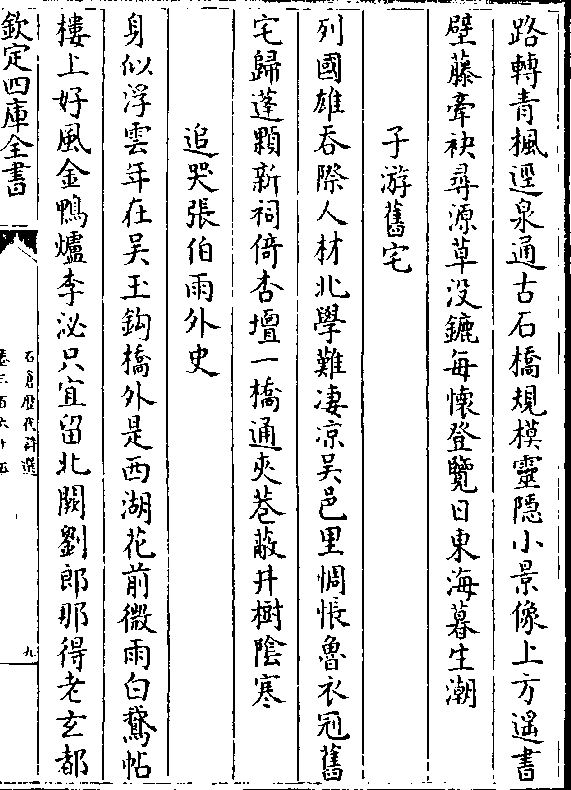 路轉青楓逕泉通古石橋規模靈隱小景像上方遥書
壁藤牽袂尋源草没鑣每懷登覽日東海暮生潮
子游舊宅
列國雄吞際人材北學難凄凉吳邑里惆悵魯衣冠舊
宅歸蓬顆新祠倚杏壇一橋通夾巷蔽井樹陰寒
追哭張伯雨外史
身似浮雲年在吴玉鈎橋外是西湖花前微雨白鵞帖
樓上好風金鴨爐李泌只宜留北闕劉郎那得老玄都
欽定四庫全書
石倉歴代詩選
卷三百六十五
九